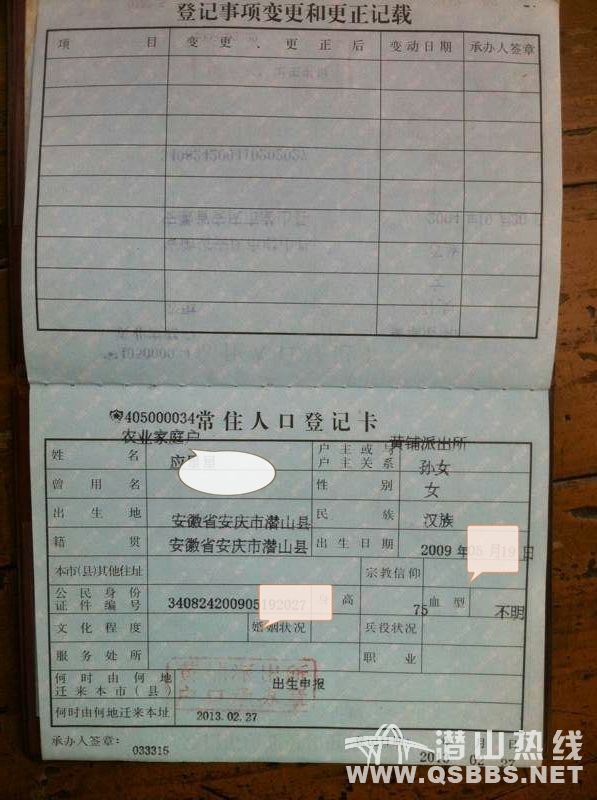 登记事项变更和更正记载
项 目 变更、更正后 变动日期 承办人签章
405000034 常住人口登记卡
农业家庭户 黄铺派出所
姓名 户主或与户主关系 孙女
曾用名 性别 女
出生地 安徽省安庆市潜山县 民族 汉族
籍贯 安徽省安庆市潜山县 出生日期 2009 年 月 日
本市(县)其他住址 宗教信仰
公民身份证件编号 340824200905 身高 75 血型 不明
文化程度 婚姻状况 兵役状况
服务处所 职业
何时由何地迁来本市(县) 出生申报
何时由何地迁来本址 2013.02.27
承办人签章: 033315
潜山热线
WWW.QSBBS.NET